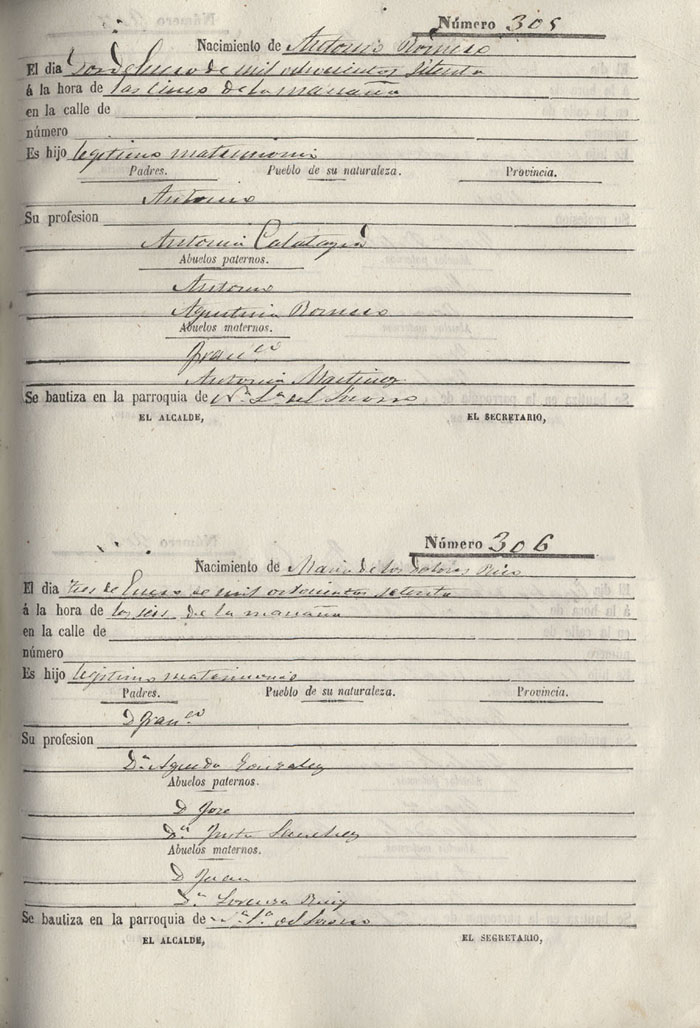 Número 305
Nacimiento de Antonio Romero
El dia dos de Enero de mil ochocientos setenta
á la hora de las cinco de la mañana
en la calle de
número
Es hijo legitimo matrimonio
Padres. Pueblo de su naturaleza. Provincia.
Antonio
Su profesion
Antonia Calatayud
Abuelos paternos.
Antonio
Agustina Romero
Abuelos maternos.
Fran.co
Antonia Martinez
Se bautiza en la parroquia de N.a S.a del Socorro
EL ALCALDE, EL SECRETARIO,
Número 306
Nacimiento de Maria de los Dolores Rico
El dia tres de Enero de mil ochocientos setenta
á la hora de las seis de la mañana
en la calle de
número
Es hijo legitimo matrimonio
Padres. Pueblo de su naturaleza. Provincia.
D Fran.co
Su profesion
D.a Agueda Gonzalez
Abuelos paternos.
D Jose
D.a Justa Sanchez
Abuelos maternos.
D Juan
D.a Lorenza Ruiz
Se bautiza en la parroquia de N.a S.a del Socorro
EL ALCALDE, EL SEGRETARIO,